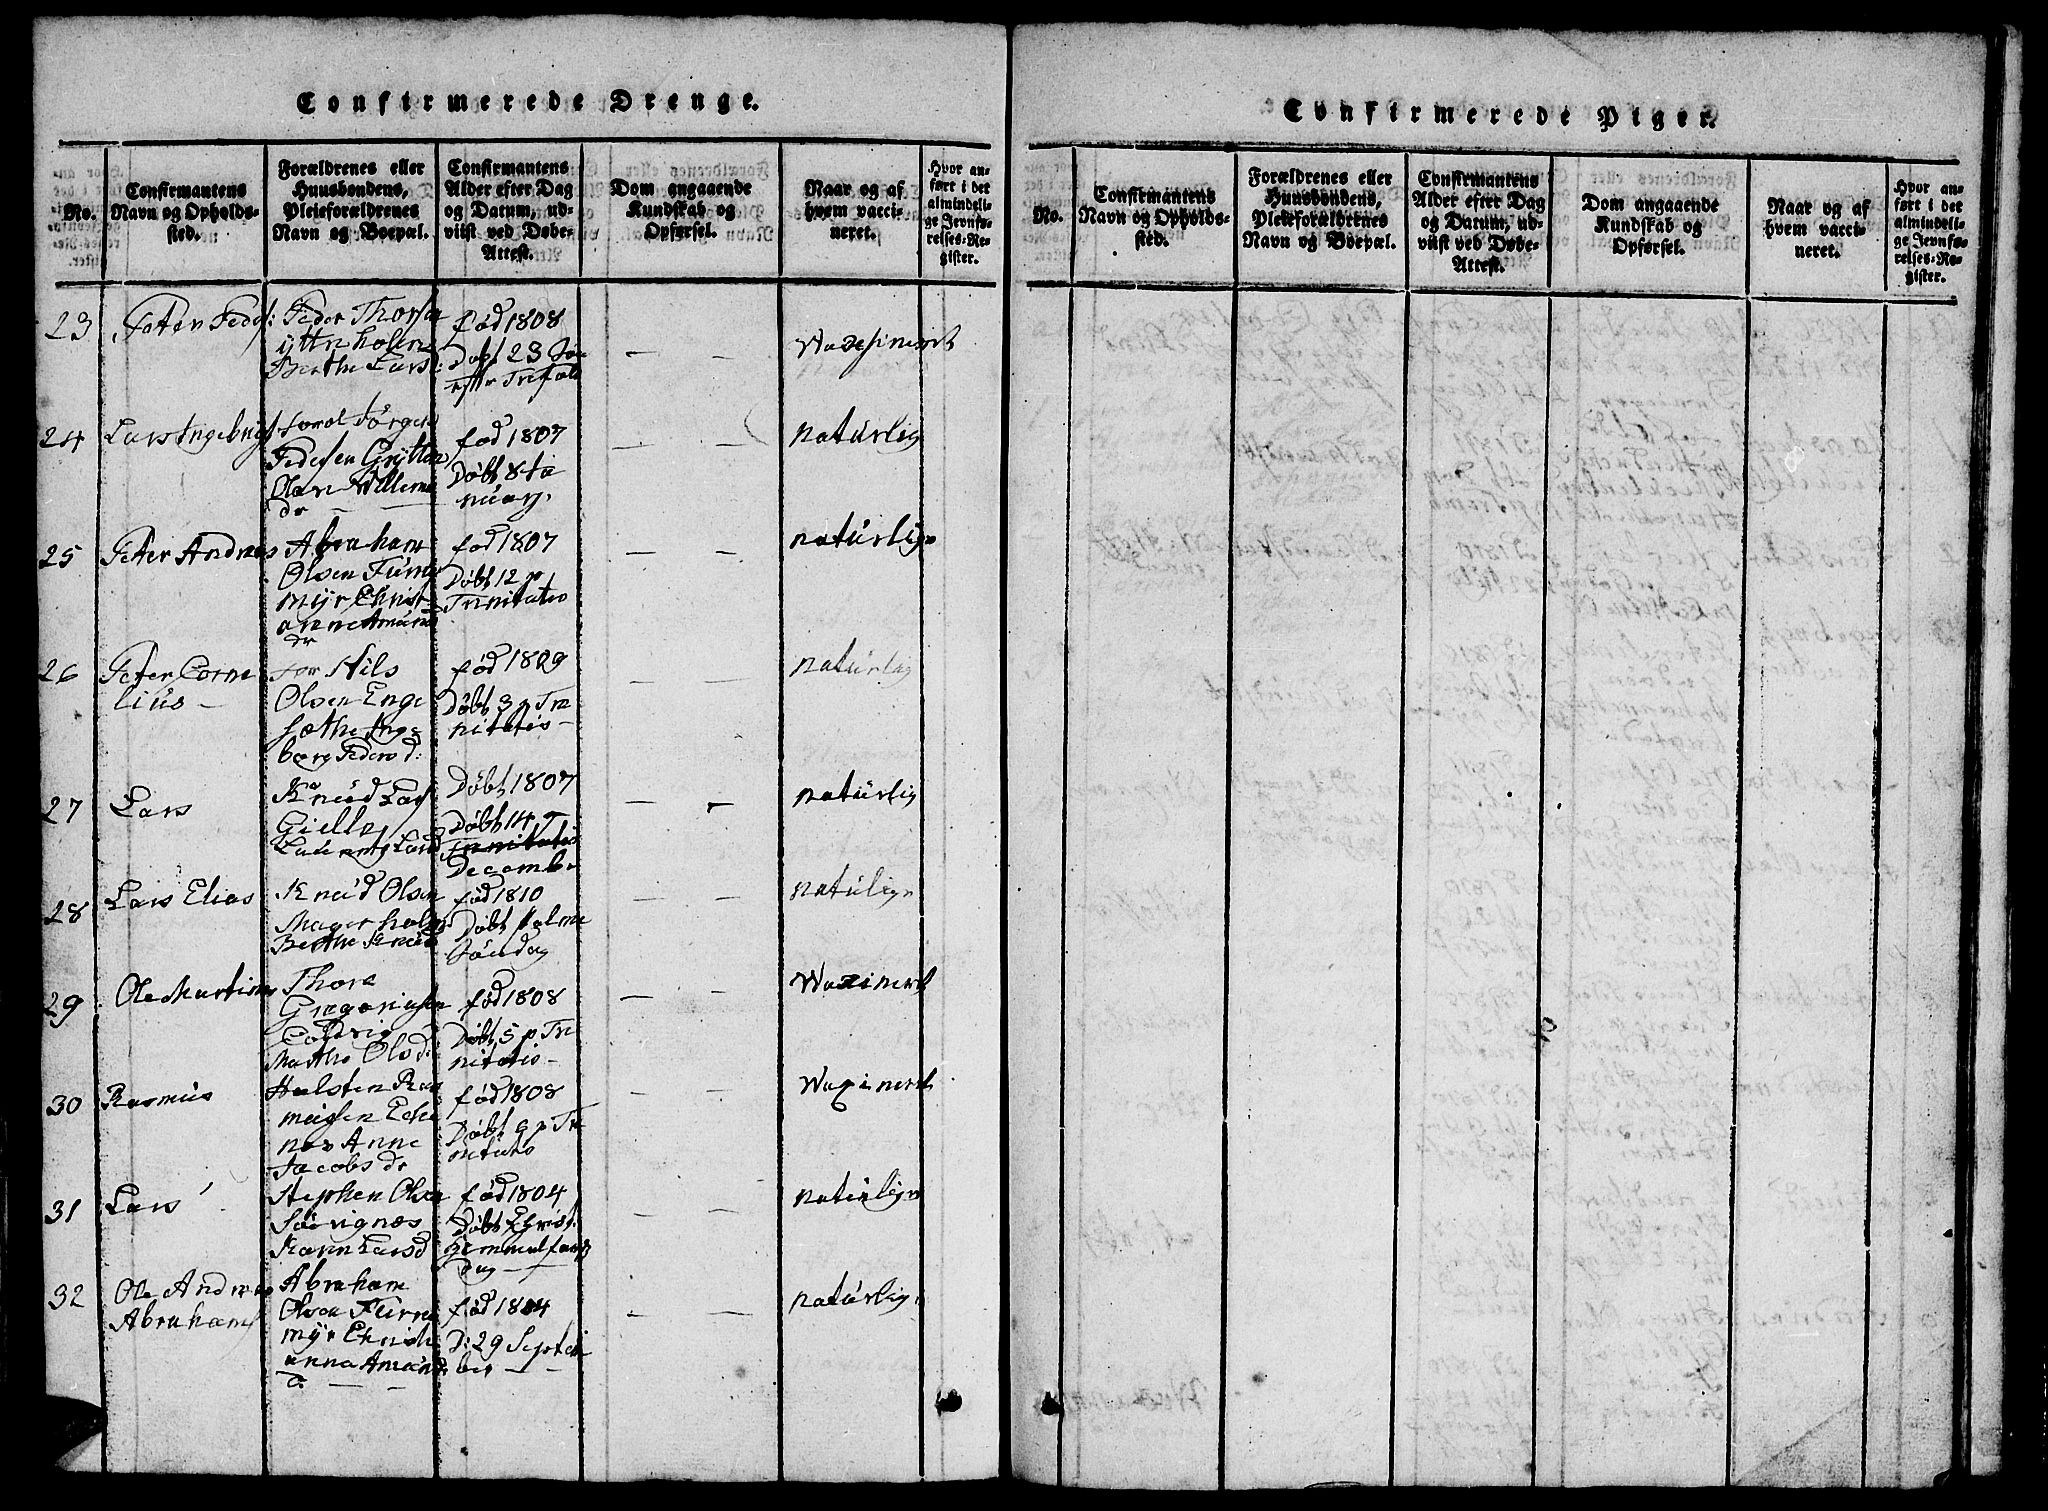 Confirmerede Drenge.
No.
Confirmantens
Navn og Opholds-
sted.
Forældrenes eller
Huusbondens,
Pleieforældrenes
Navn og Boepæl.
Confirmantens
Alder efter Dag
og Datum, ud-
viist ved Døbe-
Attest.
Dom angaaende
Kundskab og
Opførsel.
Naar og af
hvem vacci-
neret.
Hvor an-
ført i det
almindeli-
ge Jevnfø-
relses-Re-
gister.
23
Peter Peders:
Peder Thorse
ÿtterholme
Berthe Lars:
fød 1808
Døbt 23 Søn
efter Trefol
— —
Waxinert
24
Lars Ingebrigt
Jørgen
Pedersen Grÿtten
Olave Willems
dr — —
fød 1807
Døbt 8 Ja
nuarj.
— —
naturlig
25
Peter Andreas
Abraham
Olsen Furre
mÿr Christ
anne Amund
dr
fød 1807
Døbt 12 p
Trinitatis
— —
naturlign
26
Peter Corne
lius —
Nils
Olsen Enge
sæthe Inge
borg Peders d:
fød 1809
Døbt 3 p Tre
nitatis —
— —
naturlig
27
Lars
Knud Lars
Gielle
Lars d
Døbt 1807
Døbt 14 T
Trinitatis
Decembe
— —
naturlig
28
Lars Elias
Knud Olsen
Magerholm
Berthe Knud
fød 1810
Døbt Palme
Søndag
— —
natulign
29
Ole Martinus
Thore
Gregoriusen
Marthe Ols d:
fød 1808
Døbt 5 p Tri
nitatis —
— —
Waxinert
30
Rasmus
Halsten Ras
musen Eche
nes Anne
Jacobs dr
fød 1808
Døbt 9 p Tri
nitatis
— —
Waxinert
31
Lars
Stephen Olsen
Søvignæs
Karen Lars d
fød 1804
Døbt Christ
Hemmelfarts
Dag —
— —
naturlign
32
Ole Andreas
Abrahams
Abraham
Olsen Furre
mÿr Christi
anna Amund
d. — —
fød 1804
D: 29 Septem
ber — —
— —
naturlig.
Confirmerede Piger.
No.
Confirmantens
Navn og Opholds-
sted.
Forældrenes eller
Huusbondens,
Pleieforældrenes
Navn og Boepæl.
Confirmantens
Alder efter Dag
og Datum, ud-
viist ved Døbe-
Attest.
Dom angaaende
Kundskab og
Opførsel.
Naar og af
hvem vacci-
neret.
Hvor an-
ført i det
almindeli-
ge Jevnfø-
relses-Re-
gister.